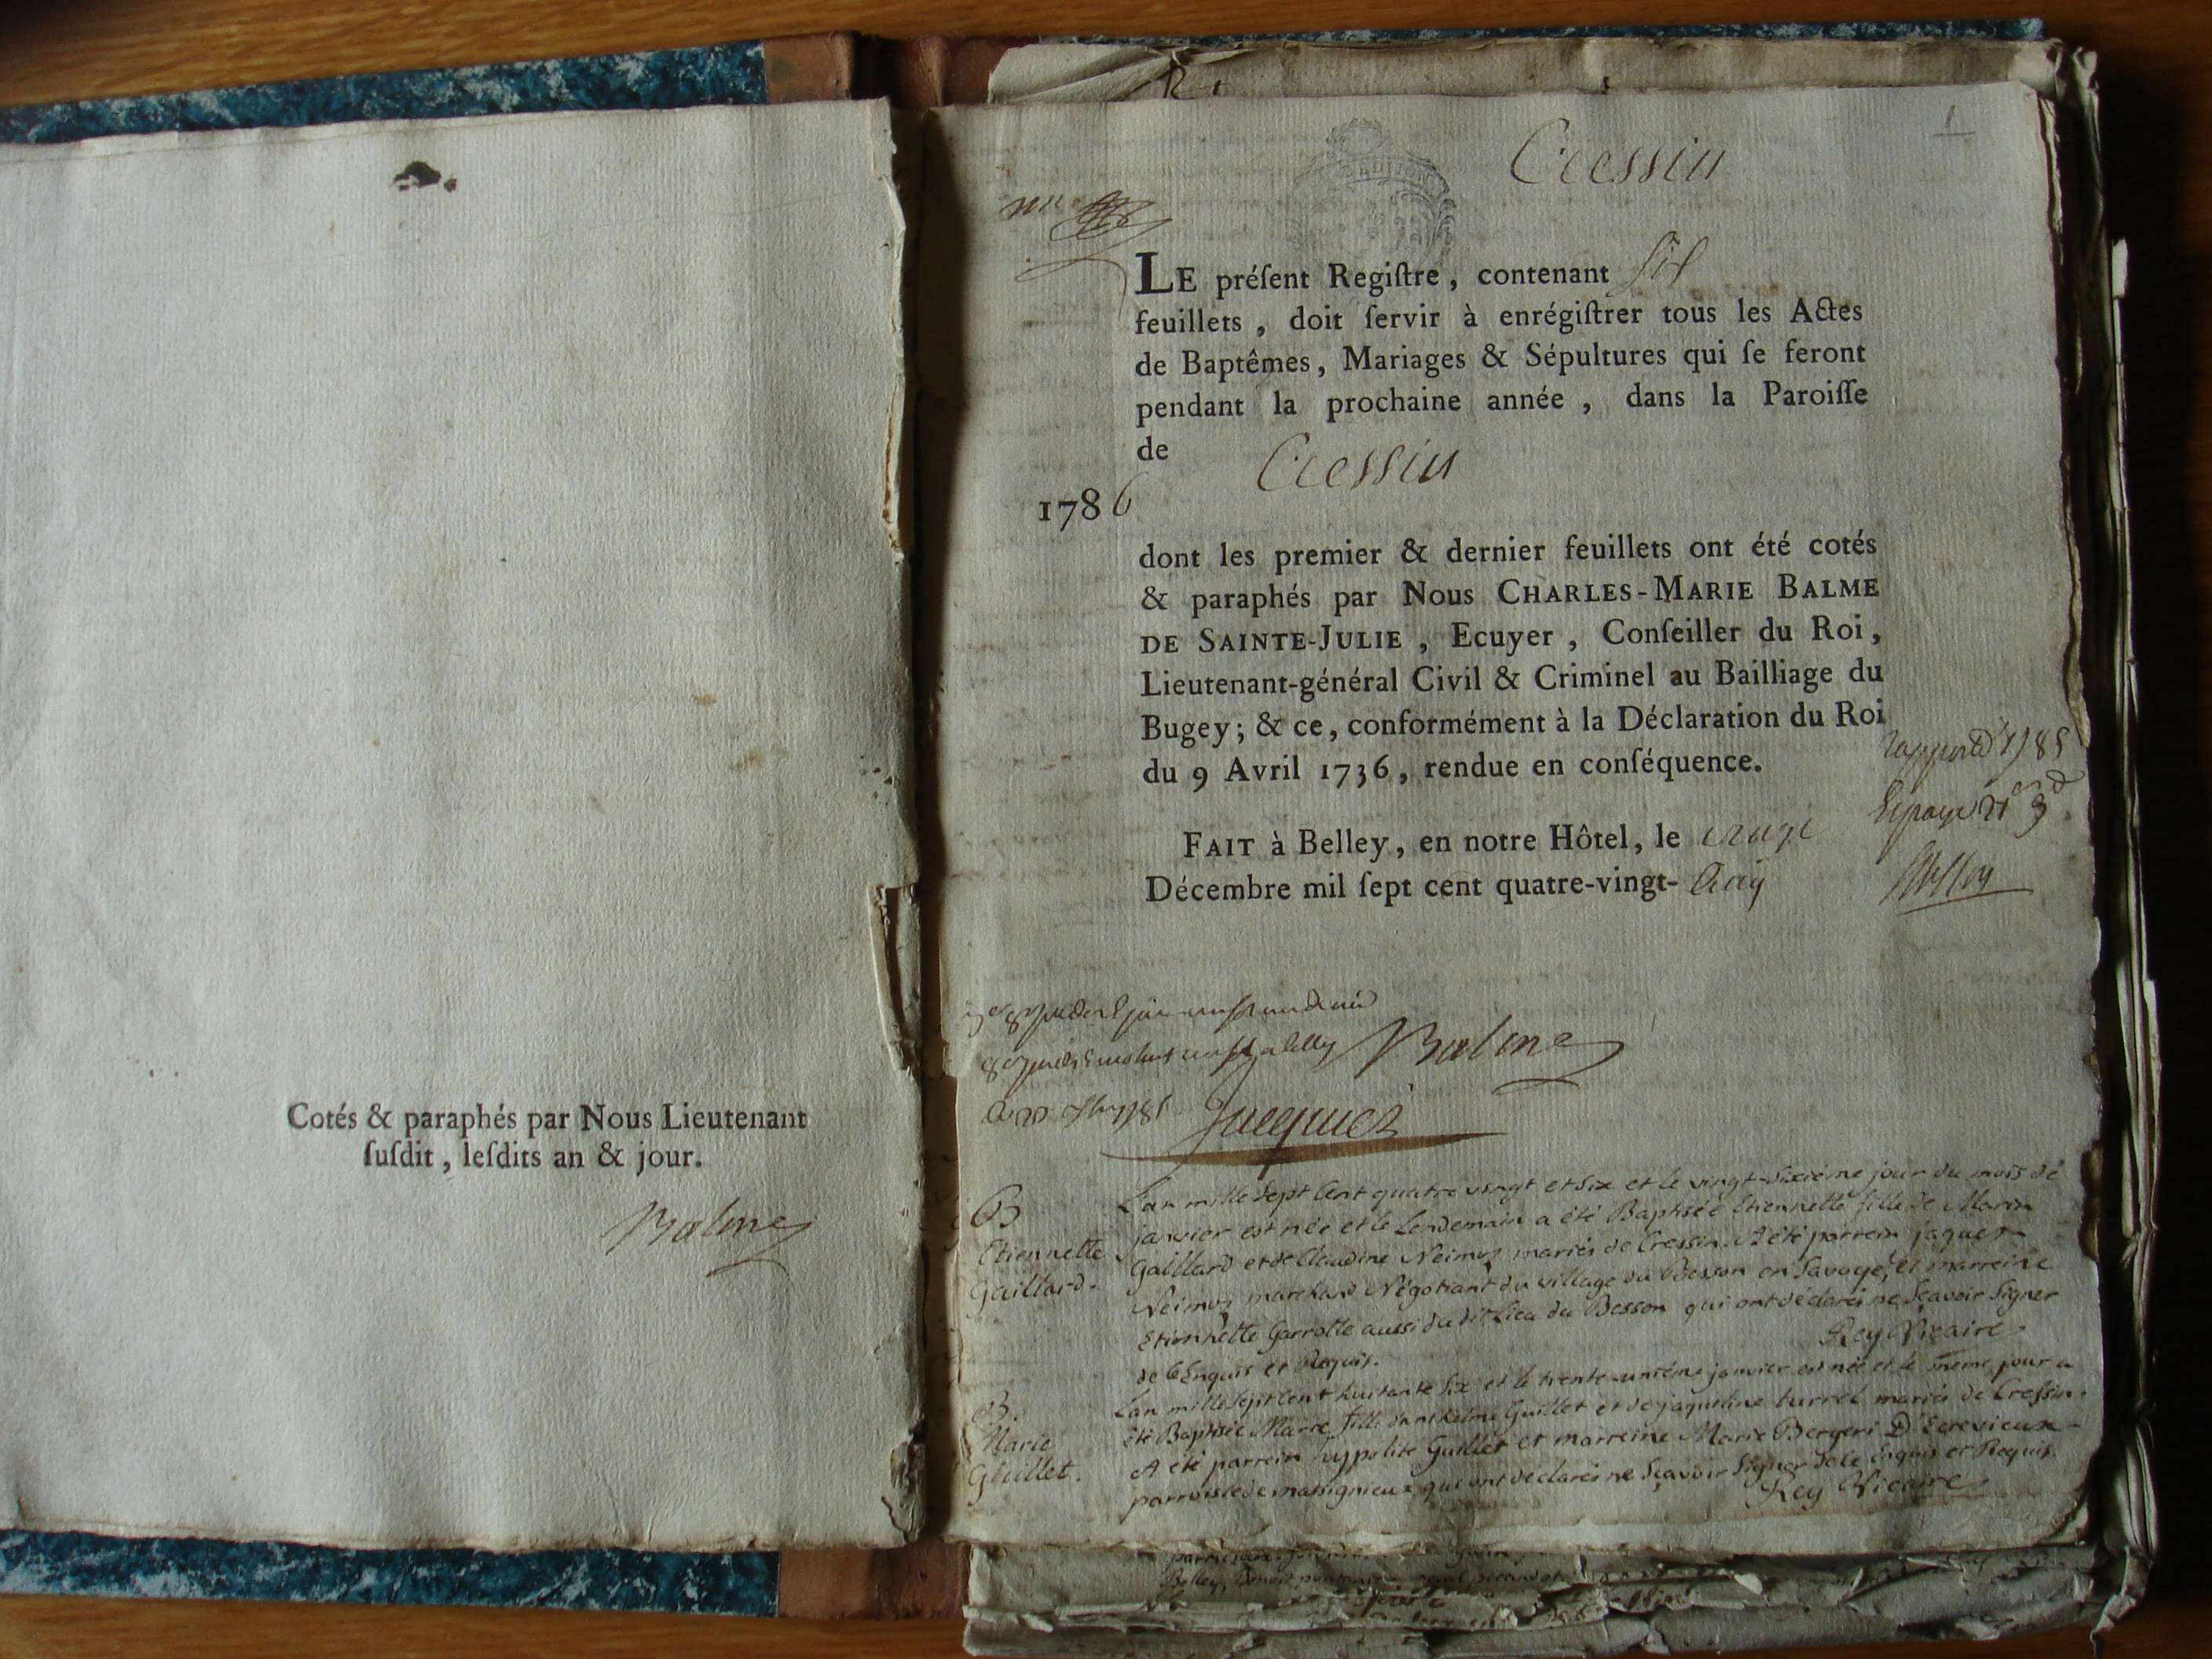 Cotés & paraphés par Nous Lieutenant
ſuſdit, leſdits an & jour.
Balme
1
Cressin
LE préſent Regiſtre, contenant six
feuillets, doit ſervir à enrégiſtrer tous les Actes
de Baptêmes, Mariages & Sépultures qui ſe feront
pendant la prochaine année, dans la Paroiſſe
de Cressin
1786
dont les premier & dernier feuillets ont été cotés
& paraphés par Nous CHARLES-MARIE BALME
DE SAINTE-JULIE, Ecuyer, Conſeiller du Roi,
Lieutenant-général Civil & Criminel au Bailliage du
Bugey; & ce, conformément à la Déclaration du Roi
du 9 Avril 1736, rendue en conſéquence.
FAIT à Belley, en notre Hôtel, le
Décembre mil ſept cent quatre-vingt- Cinq
Balme
Jacquier
B
Etiennette
Gaillard.
L'an mille sept Cent quatre vingt et six et le vingt-sixiéme jour du mois de
janvier est née et le Lendemain a été Baptisée Etiennette fille de Marin
Gaillard et de Claudine Neimoz mariés de Cressin. A été parrein jaques
Neimoz marchand Négotiant du village du Besson en Savoye, et marreine
Etiennette Garrolle aussi du dit Lieu du Besson qui ont déclarés ne Sçavoir Signer
de ce Enquis et Requis.
Rey Vicaire
B.
Marie
Guillet.
L'an mille sept Cent huitante six et le trente-unième janvier est née et le meme jour a
été Baptisée Marie fille d'anthelme Guillet et de jaqueline turrel mariés de Cressin.
A été parrein hypolite Guillet et marreine Marie Bergeri D'Ecrevieux
parroisse de massignieux qui ont déclarés ne Sçavoir Signer de ce Enquis et Requis.
Rey Vicaire